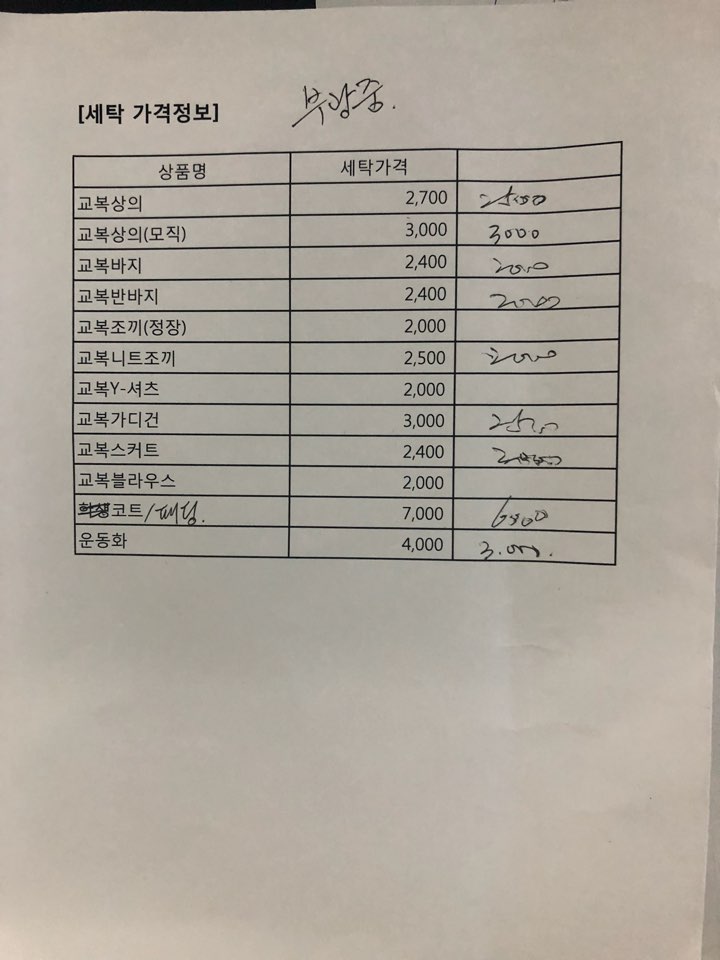 [세탁 가격정보] 부광중.
상품명 세탁가격
교복상의 2,700 2500
교복상의(모직) 3,000 3000
교복바지 2,400 2000
교복반바지 2,400 2000
교복조끼(정장) 2,000
교복니트조끼 2,500 2000
교복Y-셔츠 2,000
교복가디건 3,000 2500
교복스커트 2,400 2000
교복블라우스 2,000
학생코트/패딩. 7,000 6000
운동화 4,000 3.000.